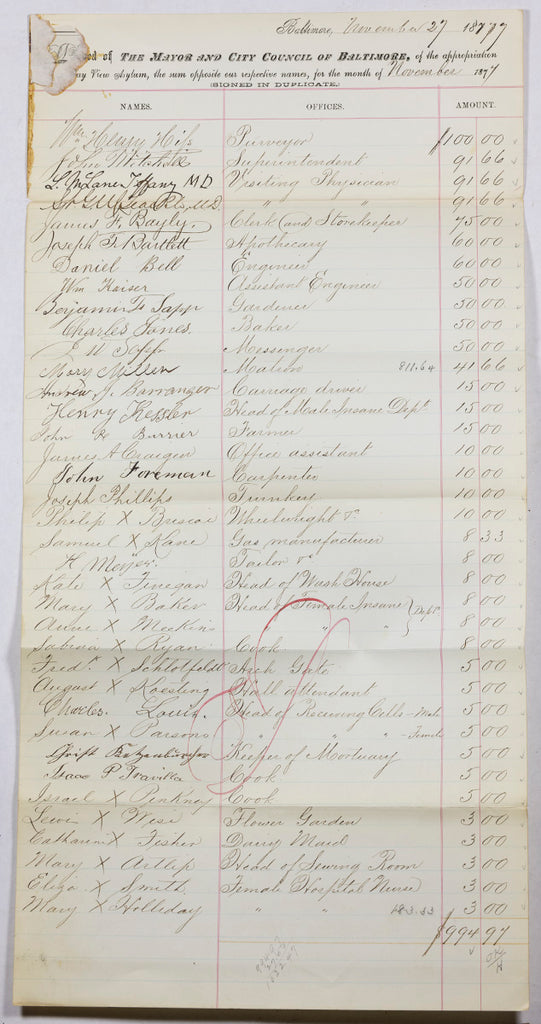 Baltimore, November 27 1877
ed of THE MAYOR AND CITY COUNCIL OF BALTIMORE, of the appropriation
ay View Asylum, the sum opposite our respective names, for the month of November 1877
(SIGNED IN DUPLICATE.)
NAMES. OFFICES. AMOUNT.
Wm Henry Hiss Purveyor $100 00
John Superintendent 91 66
L. McLane Tiffany MD Visiting Physician 91 66
M.D. " " 91 66
James F. Bayly. Clerk (and) Storekeeper 75 00
Joseph T. Bartlett Apothecary 60 00
Daniel Bell Engineer 60 00
Wm Kaiser Assistant Engineer 50 00
Benjamin F Sapp Gardener 50 00
Charles Janes. Baker 50 00
Messenger 50 00
Mary Miller Matron 811.64 41 66
Andrew J. Barranger Carriage driver 15 00
Henry Kessler Head of Male Insane Dept 15 00
John H Burrier Farmer 15 00
James A Creagen Office assistant 10 00
John Foreman Carpenter 10 00
Joseph Phillips Turnkey 10 00
Philip X Briscoe Wheelwright &c 10 00
Samuel X Kane Gas manufacturer 8 33
H. Meyer. Tailor &c 8 00
Kate X Finegan Head of Wash House 8 00
Mary X Baker Head of Female Insane } Dept 8 00
Anne X Meekins " " " 8 00
Sabina X Ryan Cook 8 00
Fredk X Schlotfeldt Arch Gate 5 00
August X Koesting Hall attendant 5 00
Charles Louis. Head of Receiving Cells - Male 5 00
Susan X Parsons " " " - Female 5 00
Christ Katzenburger Keeper of Mortuary 5 00
Isaac P Travilla Cook 5 00
Israel X Pinkney Cook 5 00
Lewis X Wise Flower Garden 3 00
Catharine X Fisher Dairy Maid 3 00
Mary X Artlip Head of Sewing Room 3 00
Eliza X Smith Female Hospital Nurse 3 00
Mary X Holliday " " 183.33 3 00
$994 97